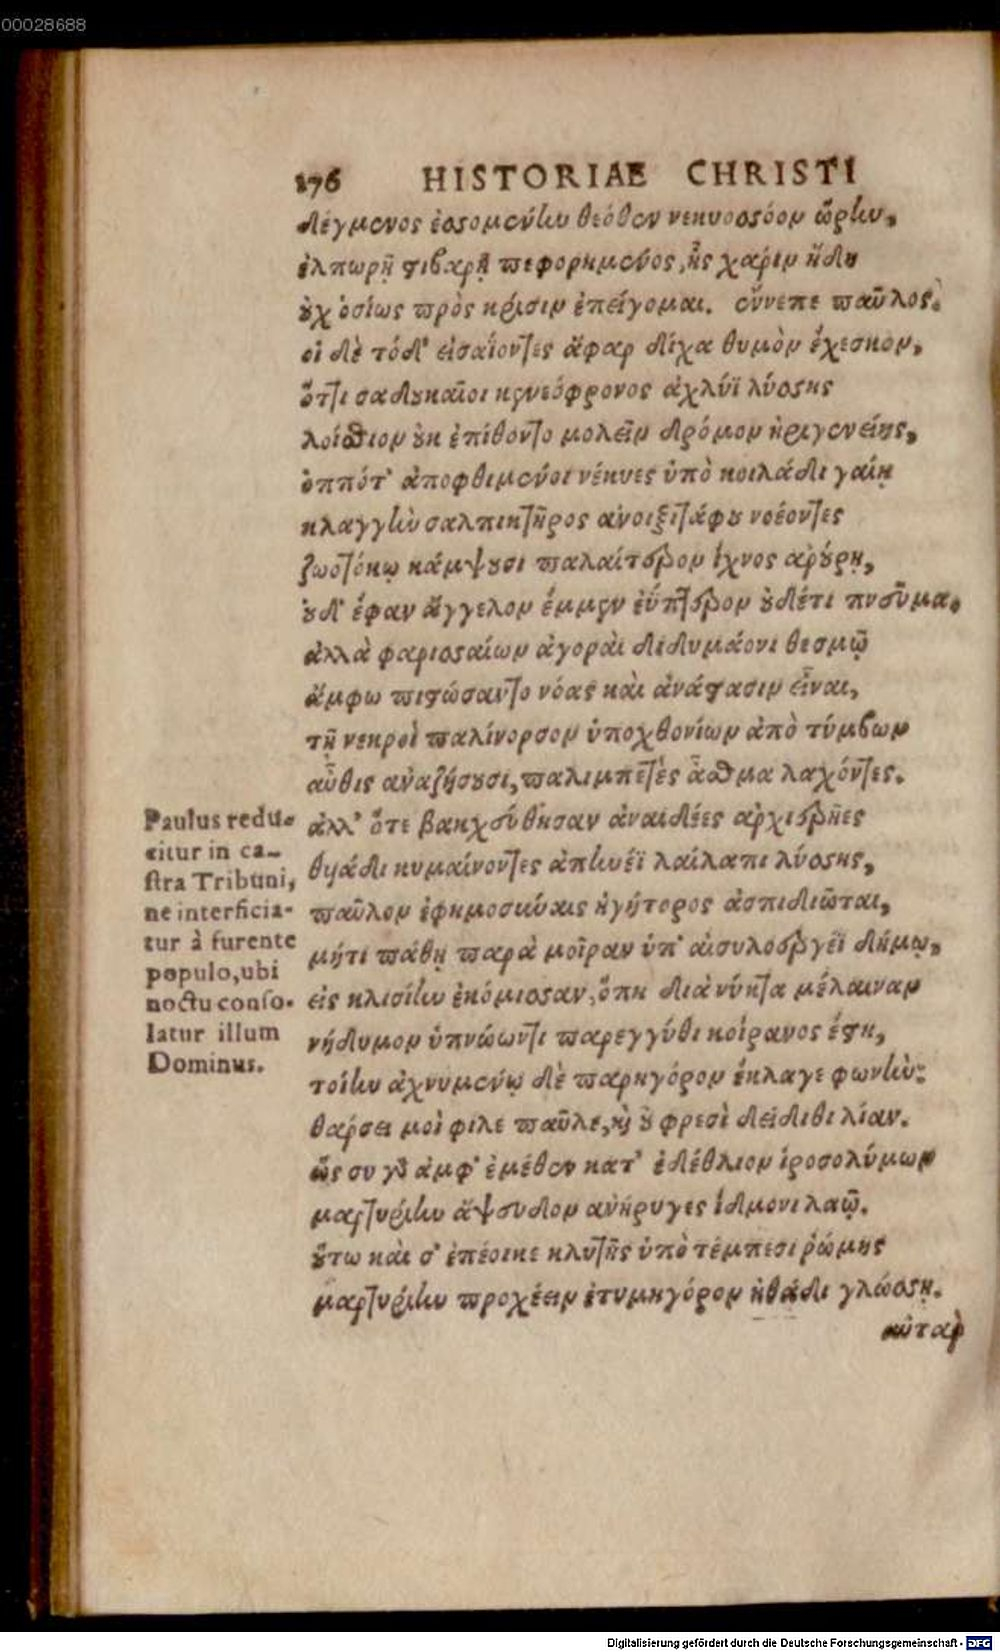 00028688
176 HISTORIAE CHRISTI
δέγμενος ἐσσομένην θεόθεν νεκυοσσόον ὥρην,
ἐλπωρῇ στιβαρῇ πεφορημένος, ἧς χάριν ἤδη
οὐχ ὁσίως πρὸς κρίσιν ἐπείγομαι. ἔννεπε παῦλος.
οἱ δὲ τόδ' εἰσαΐοντες ἄφαρ δίχα θυμὸν ἔχεσκον,
ὅττι σαδουκαῖοι κενεόφρονος ἀχλύϊ λύσσης
λοίσθιον οὐκ ἐπίθοντο μολεῖν δρόμον ἠριγενείης,
ὁππότ' ἀποφθιμένοι νέκυες ὑπὸ κοιλάδι γαίῃ
κλαγγὴν σαλπιγκτῆρος ἀνοιξιτάφου νοέοντες
ζωοτόκῳ κάμψουσι παλαίτερον ἴχνος ἀρούρῃ,
οὐδ' ἔφαν ἄγγελον ἔμμεν ἐΰπτερον οὐδέτι πνεῦμα.
ἀλλὰ φαρισσαίων ἀγοραὶ διδυμάονι θεσμῷ
ἄμφω πιστώσαντο νόας καὶ ἀνάστασιν εἶναι,
τῇ νεκροὶ παλίνορσον ὑποχθονίων ἀπὸ τύμβων
αὖθις ἀναζήσουσι, παλιμπετὲς ἆσθμα λαχόντες.
ἀλλ' ὅτε βακχεύθησαν ἀναιδέες ἀρχιερῆες
θυάδι κυμαίνοντες ἀπηνέϊ λαίλαπι λύσσης,
παῦλον ἐφημοσύναις ἡγήτορος ἀσπιδιῶται,
μήτι πάθῃ παρὰ μοῖραν ὑπ' αἰσυλοεργέϊ δήμῳ,
εἰς κλισίην ἐκόμισσαν, ὅπη διὰ νύκτα μέλαιναν
νήδυμον ὑπνώωντι παρεγγύθι κοίρανος ἔστη,
τοίην ἀχνυμένῳ δὲ παρηγόρον ἔκλαγε φωνήν:
θάρσει μοὶ φίλε παῦλε, καὶ οὐ φρεσὶ δείδιθι λίαν.
ὡς συ γὰρ ἀμφ' ἐμέθεν κατ' ἐδέθλιον ἱροσολύμων
μαρτυρίην ἄψευδον ἀνήρυγες ἴδμονι λαῷ.
οὕτω καὶ σ' ἐπέοικε κλυτῆς ὑπὸ τέμπεσι ῥώμης
μαρτυρίην προχέειν ἐτυμηγόρον ἠθάδι γλώσσῃ.
αὐτὰρ
Paulus redu-
citur in ca-
stra Tribuni,
ne interficia-
tur à furente
populo, ubi
noctu conso-
latur illum
Dominus.
Digitalisierung gefördert durch die Deutsche Forschungsgemeinschaft - DFG